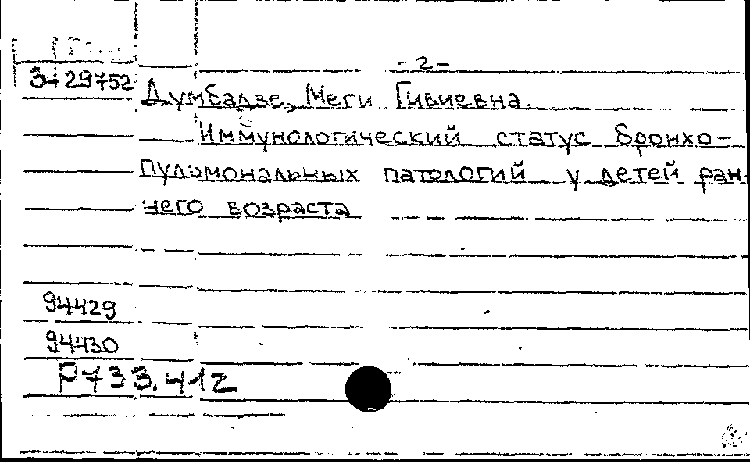 - 2 -
3-29752
Думбадзе, Меги Гивиевна.
Иммунологический статус бронхо-
пульмональных патологий у детей ран-
него возраста
94429
94430
Р733.412